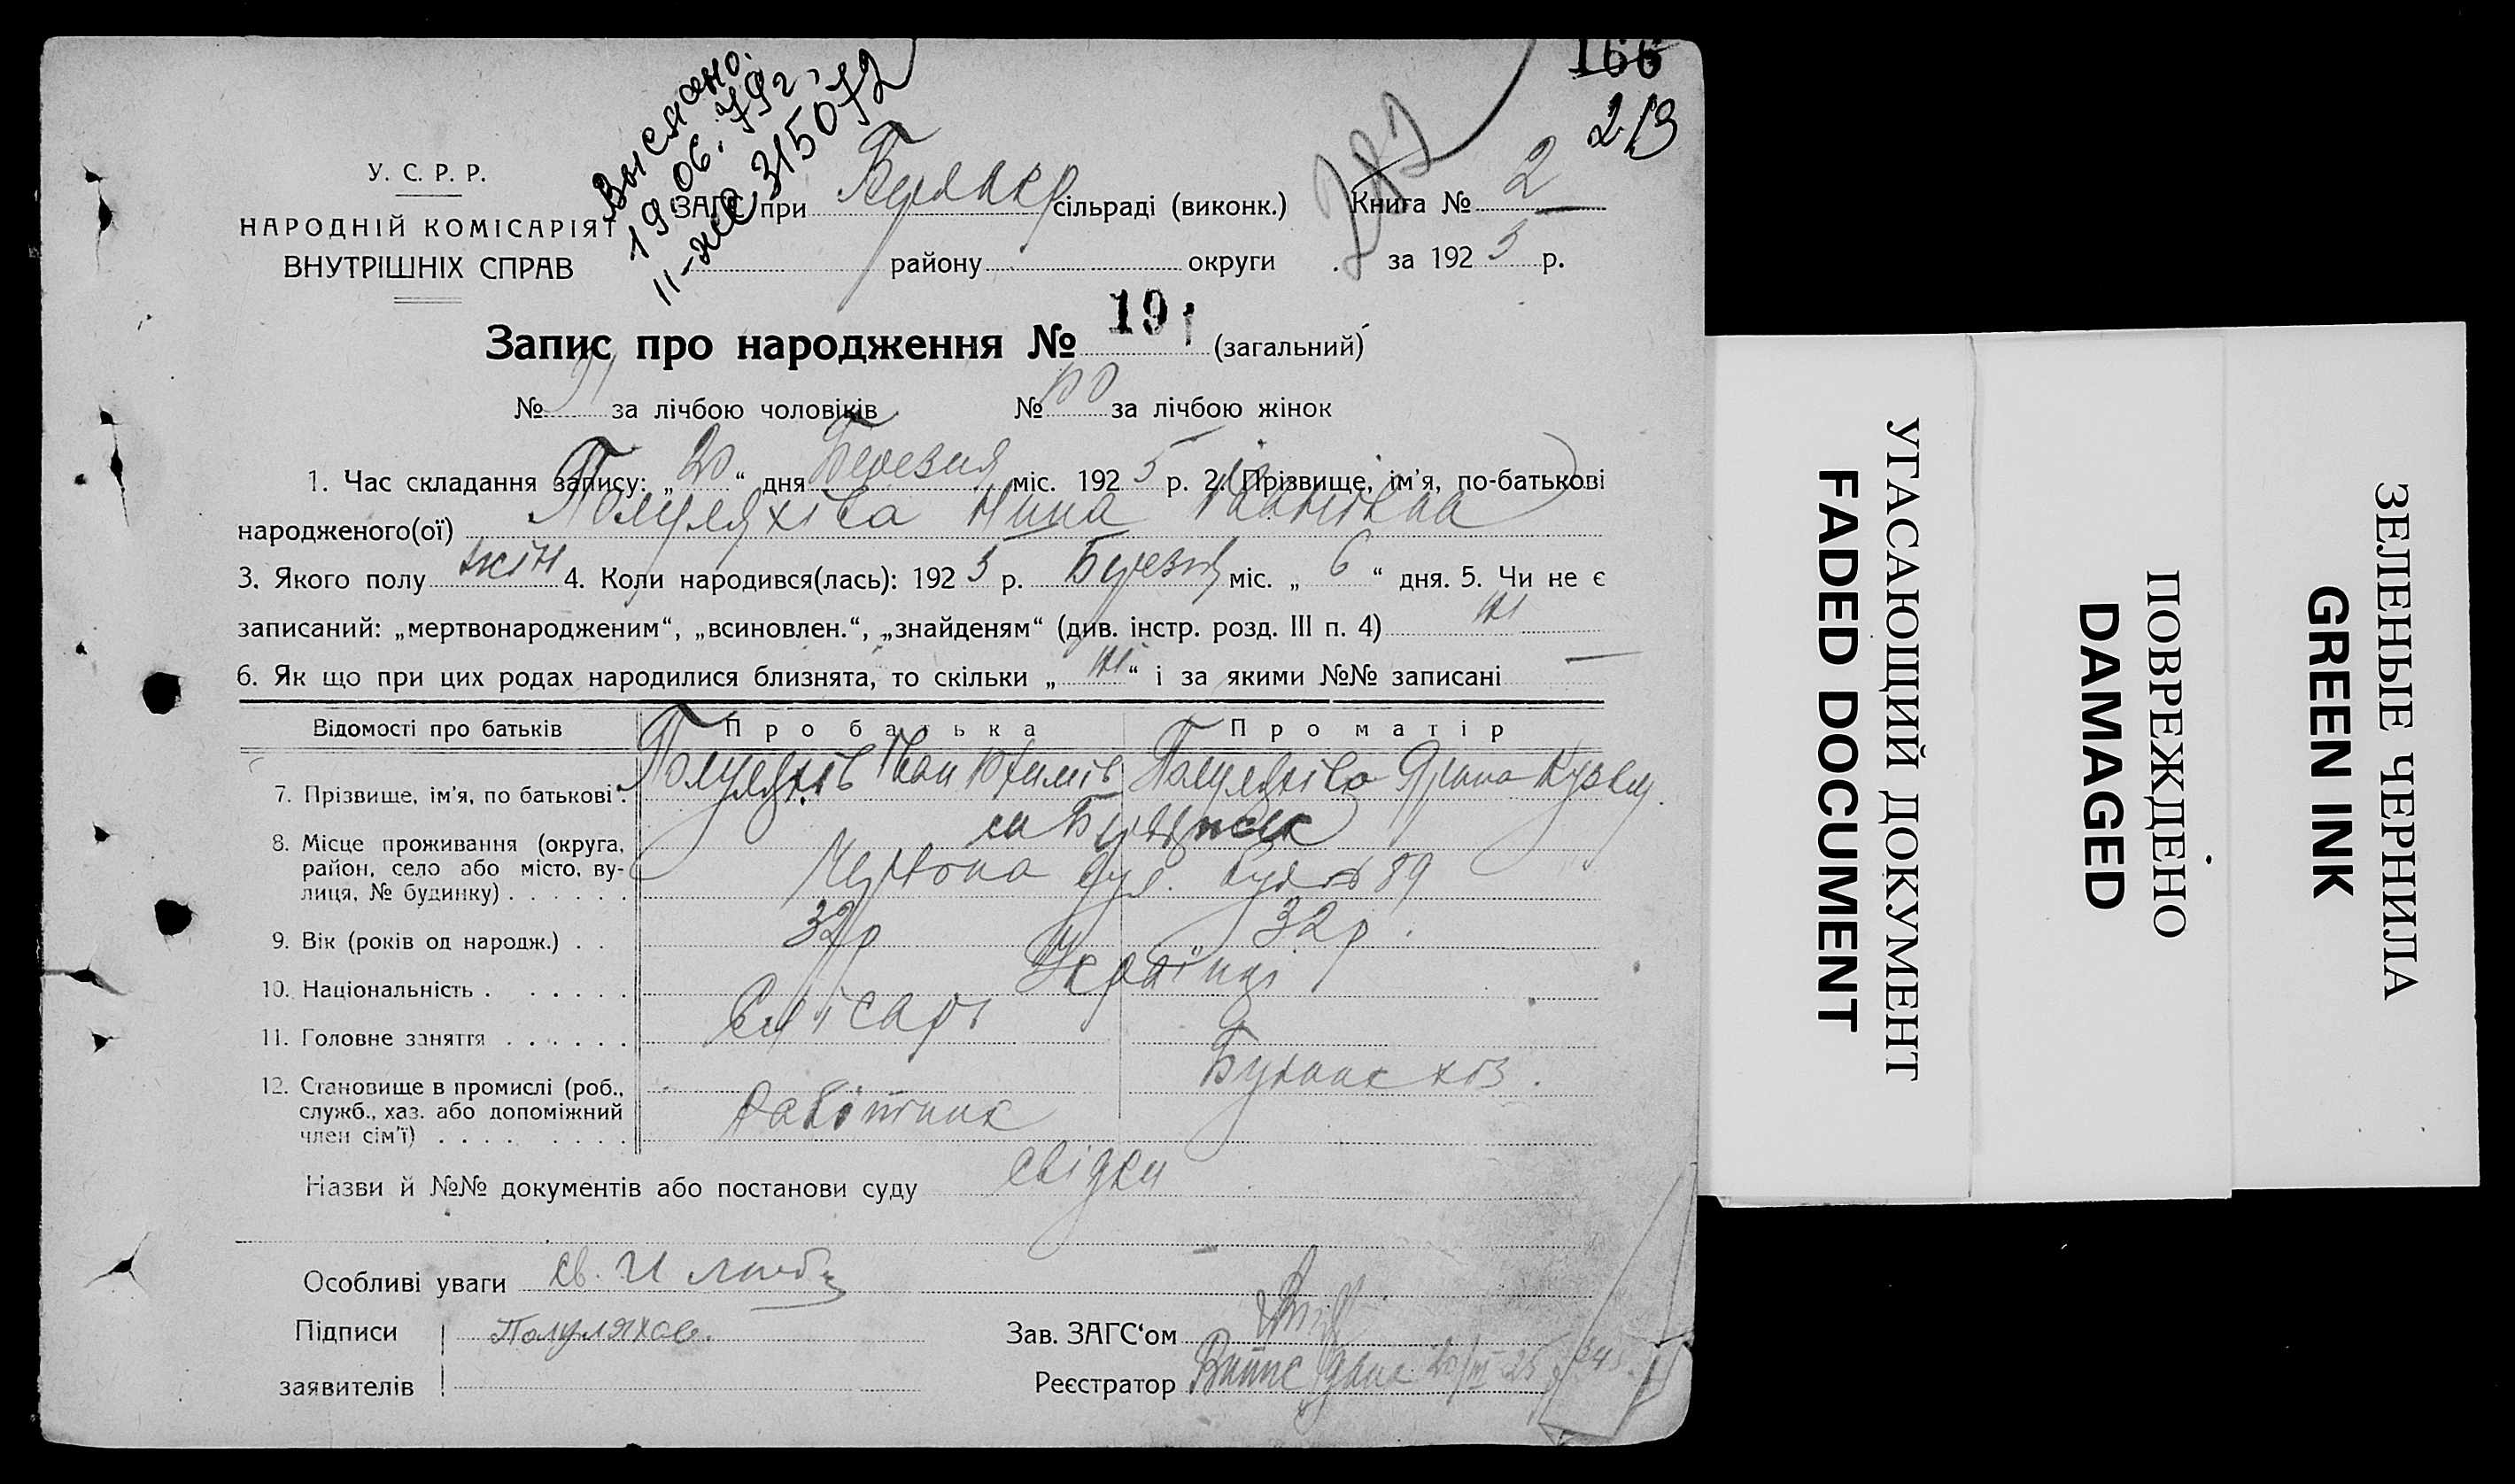 166
213
Выслано.
19.06.79г.
II-жс 315072
283
У. С. Р. Р.
НАРОДНІЙ КОМІСАРІЯТ
ВНУТРІШНІХ СПРАВ
ЗАГС при сільраді (виконк.) Книга № 2
району округи за 1925 р.
Запис про народження № 191 (загальний)
№ 91 за лічбою чоловіків № 100 за лічбою жінок
1. Час складання запису: „20“ дня Березня міс. 1925 р. 2. Прізвище, ім'я, по-батькові
народженого(ої) Полуляхіва Нина Іванівна
3. Якого полу жін 4. Коли народився(лась): 1925 р. Березня міс. „6“ дня. 5. Чи не є
записаний: „мертвонародженим“, „всиновлен.“, „знайденям“ (див. інстр. розд. III п. 4) ні
6. Як що при цих родах народилися близнята, то скільки „ні“ і за якими №№ записані —
Відомості про батьків Про батька Про матір
7. Прізвище, ім'я, по батькові. Полуляхів Іван Юхимів Полуляхіва Ярина Кузьм.
8. Місце проживання (округа,
район, село або місто, ву-
лиця, № будинку) Червона вул. буд № 89
9. Вік (років од народж.) 32р 32р.
10. Національність Українці
11. Головне заняття Слісарь
12. Становище в промислі (роб.,
служб., хаз. або допоміжний
член сім'ї) Робітник
Назви й №№ документів або постанови суду свідки
Особливі уваги св.
Підписи Полуляхов. Зав. ЗАГС'ом
заявителів Реєстратор 20/III 25
УГАСАЮЩИЙ ДОКУМЕНТ
FADED DOCUMENT
ПОВРЕЖДЕНО
DAMAGED
ЗЕЛЕНЫЕ ЧЕРНИЛА
GREEN INK